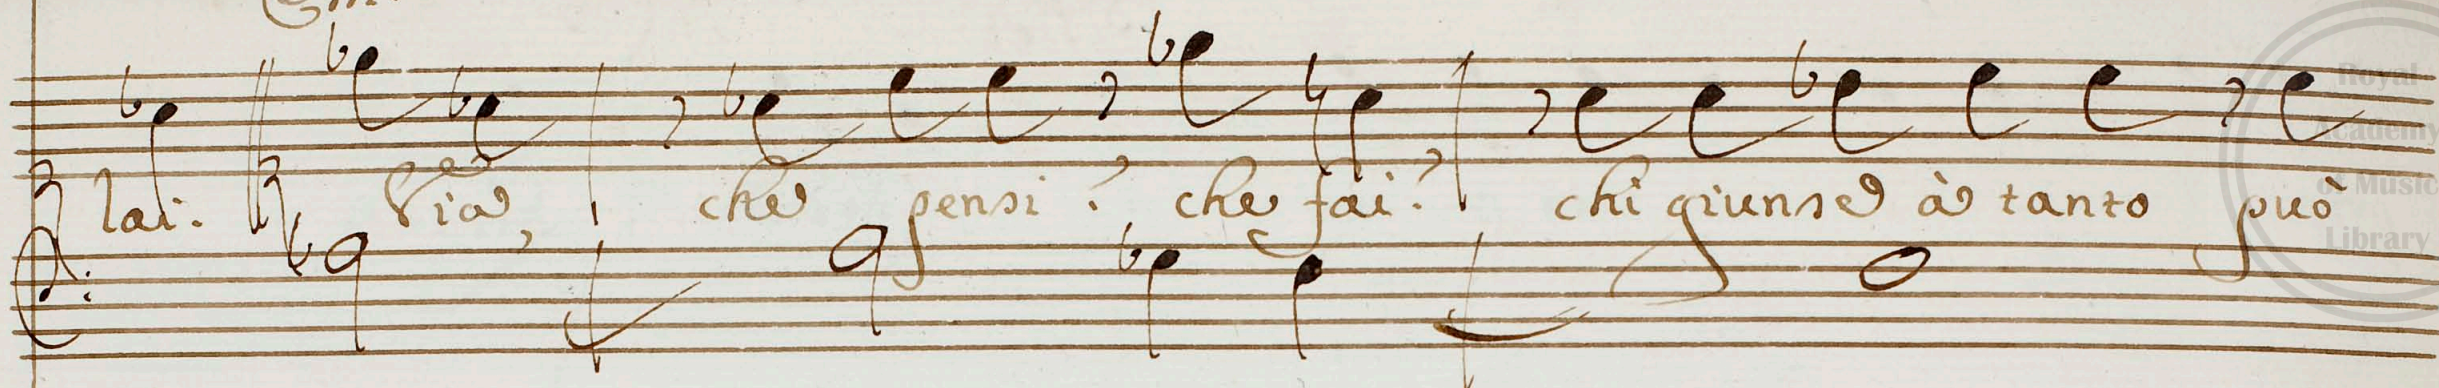 lai. Via che pensi? che fai? chi giunse à tanto può
Royal
Academy
of Music
Library